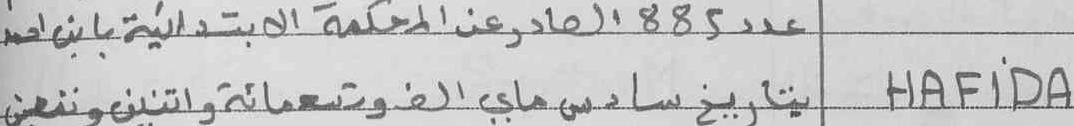 عدد 885 الصادر عن المحكمة الابتدائية بابن احمد
HAFIDA بتاريخ سادس ماي الف وتسعمائة واثنين وتسعين